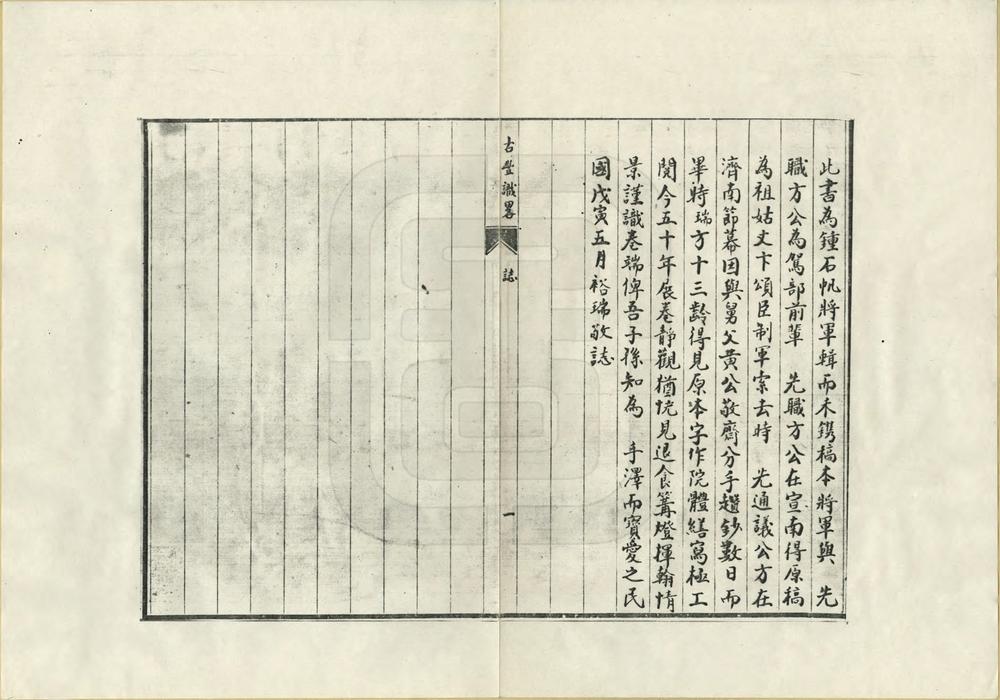 此書為鍾石帆將軍輯而未鐫稿本將軍與　先
職方公為駕部前輩　先職方公在宣南得原稿
為祖姑丈卞頌臣制軍索去時　先通議公方在
濟南節幕因與舅父黃公敬齋分手趲鈔數日而
畢時瑞方十三齡得見原本字作院體繕寫極工
閱今五十年展卷靜觀猶恍見退食篝燈揮翰情
景謹識卷端俾吾子孫知為　手澤而寶愛之民
國戊寅五月裕瑞敬誌
古豐識畧
誌
一